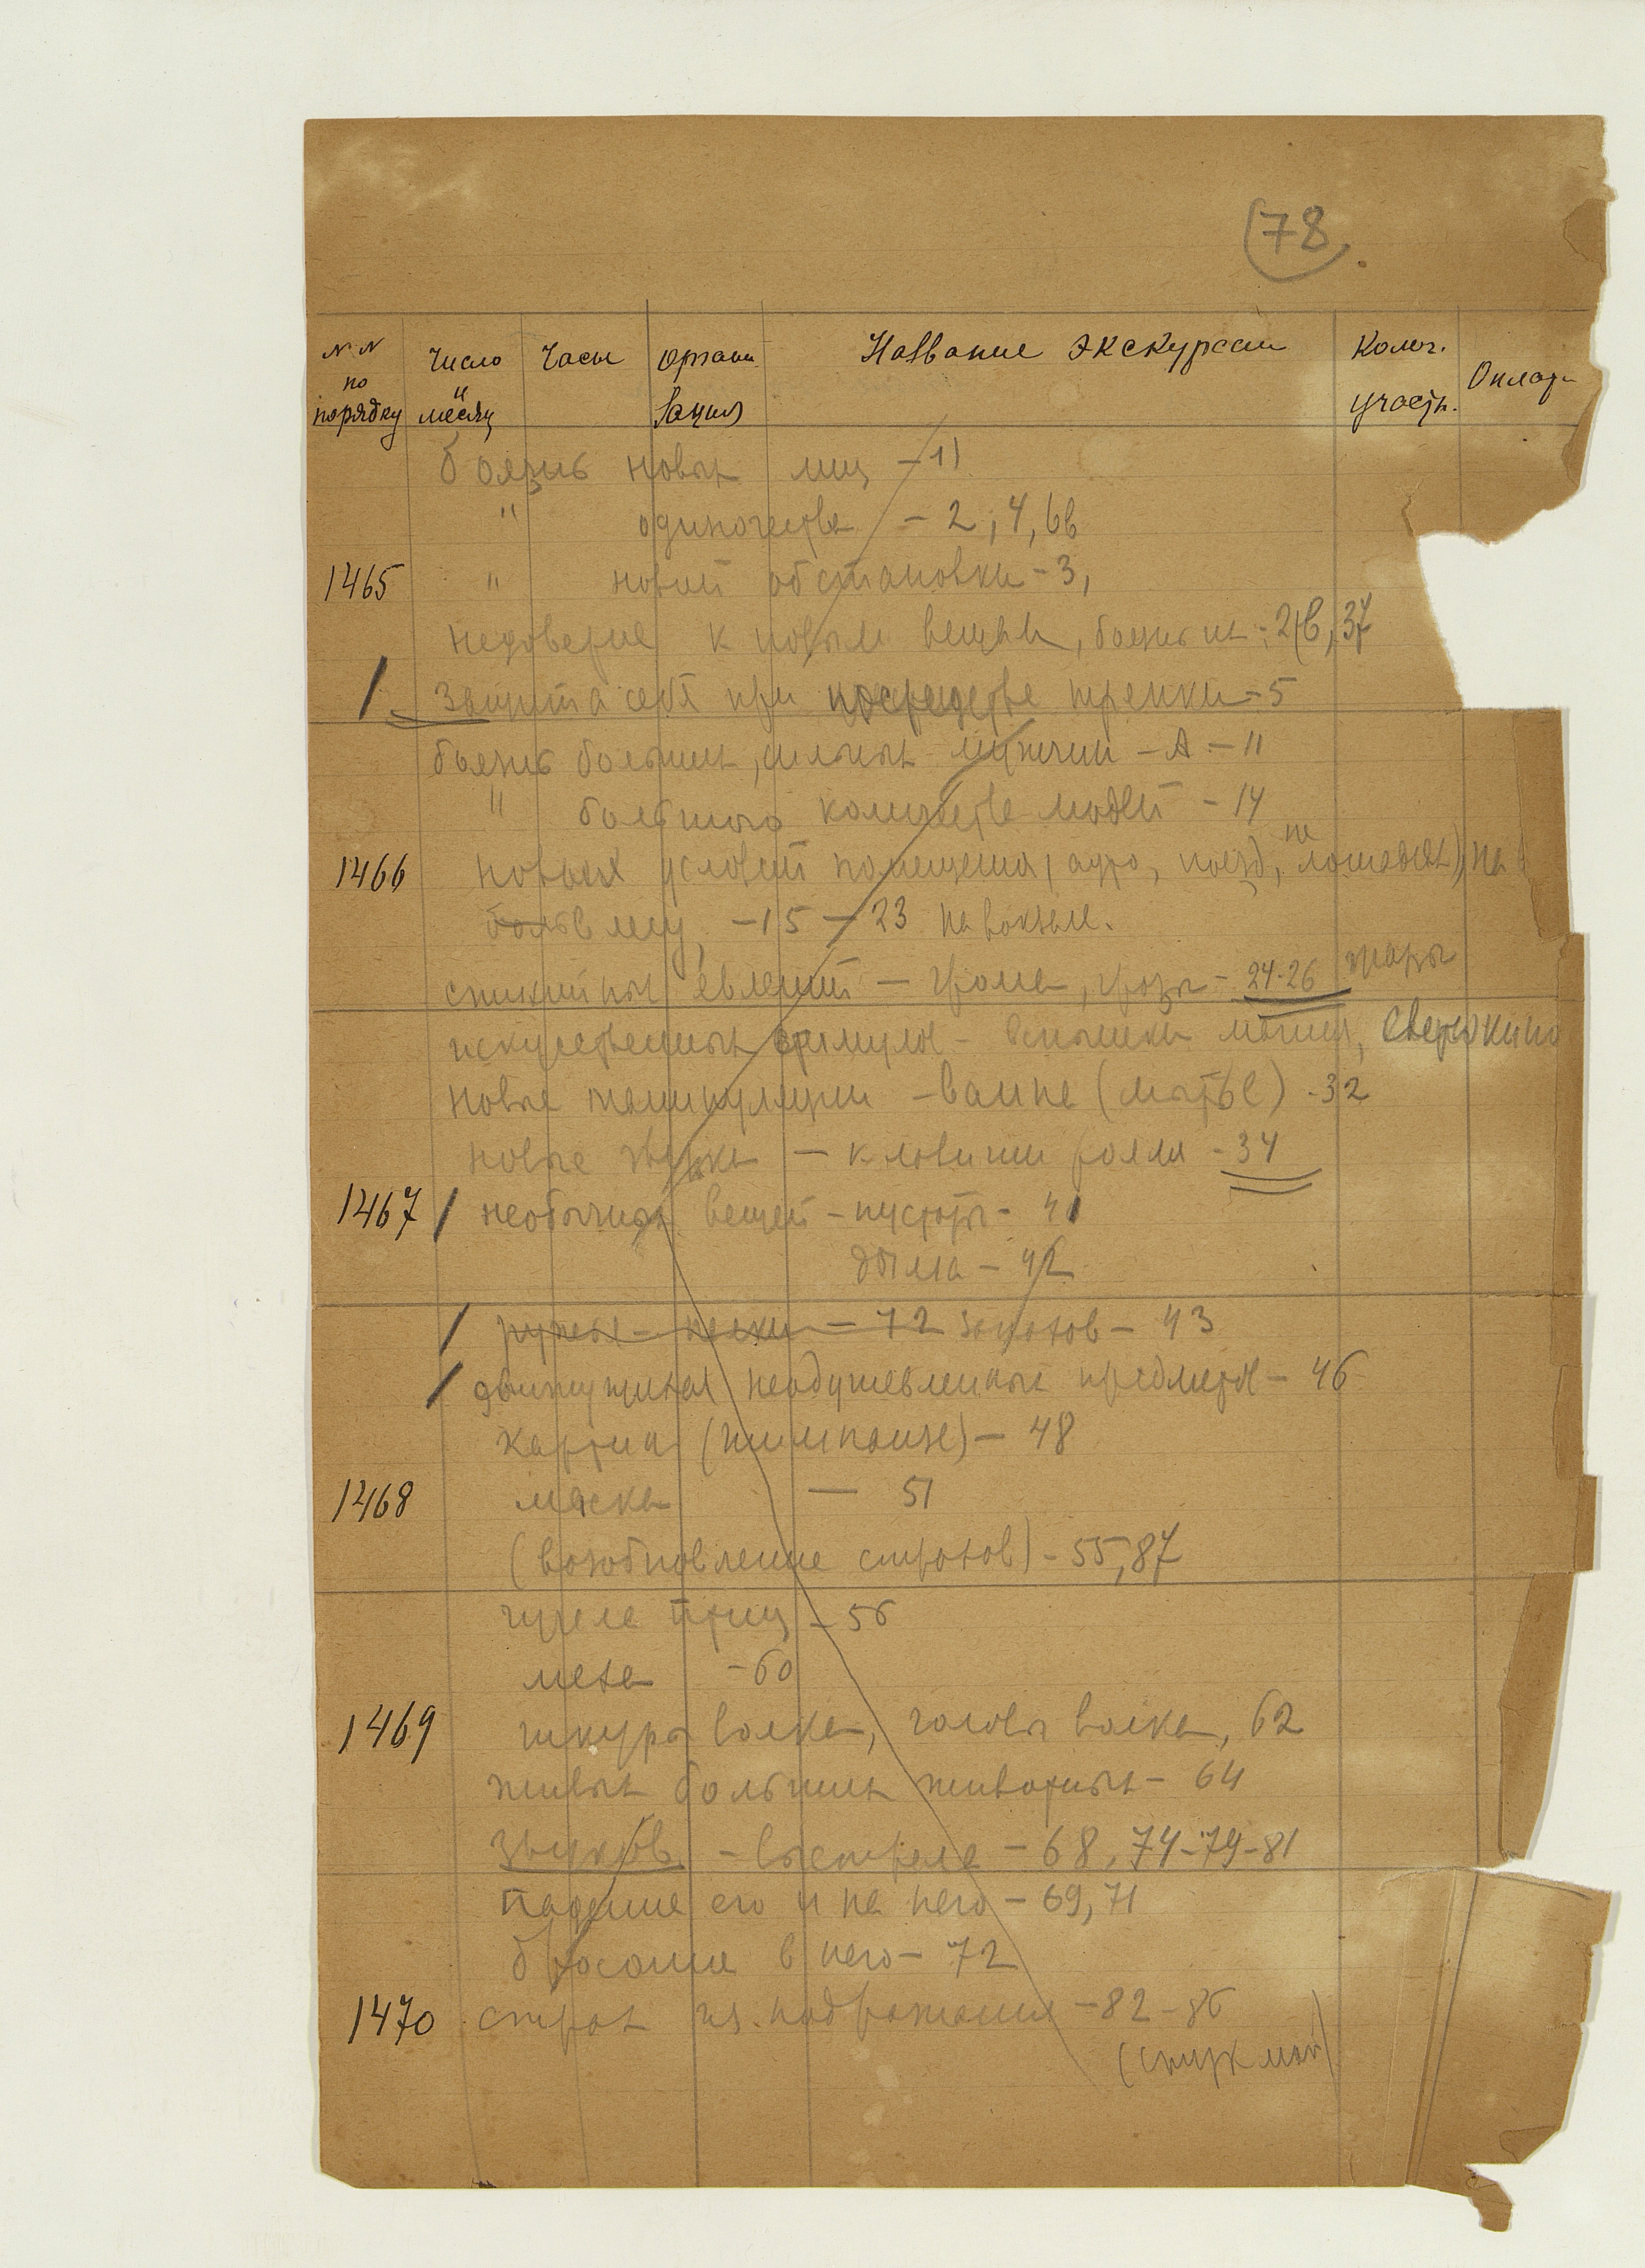 (78.
№№ по порядку
Число и месяц
Часы
Органи зация
Название экскурсии
Колич. участн.
Оплат
боязнь новых лиц - 1)
" одиночества - 2, 4, 6в
1465 " новой обстановки - 3,
недоверие к новым вещам, боязнь их - 2, 37
/ Защита себя при посредстве тряпки - 5
боязнь больших, сильных мужчин - А - 11
" большого количества людей - 14
1466 новых условий помещения (авто, поезд, на лошадях), на
в лесу, - 15 - 23 на вокзале.
стихийных явлений - грома, грозы - 24-26 жары
искусственных стимулов - вспышки магния,
новые манипуляции - ванна (мытье) - 32
новые звуки - клавиши рояля - 34
1467 / необычных вещей - пустоты - 41
дыма - 42
/ ружья - палки - 72 запахов - 43
/ движущихся неодушевленных предметов - 46
картин (шимпанзе) - 48
1468 маска - 51
(возобновление страхов) - 55, 87
чучела птиц - 56
меха - 60
1469 шкура волка, головы волка, 62
живых больших животных - 64
звуков - выстрела - 68, 74-79-81
падение его и на него - 69, 71
бросание в него - 72
1470 страх из подражания - 82 - 86
(стук мой)